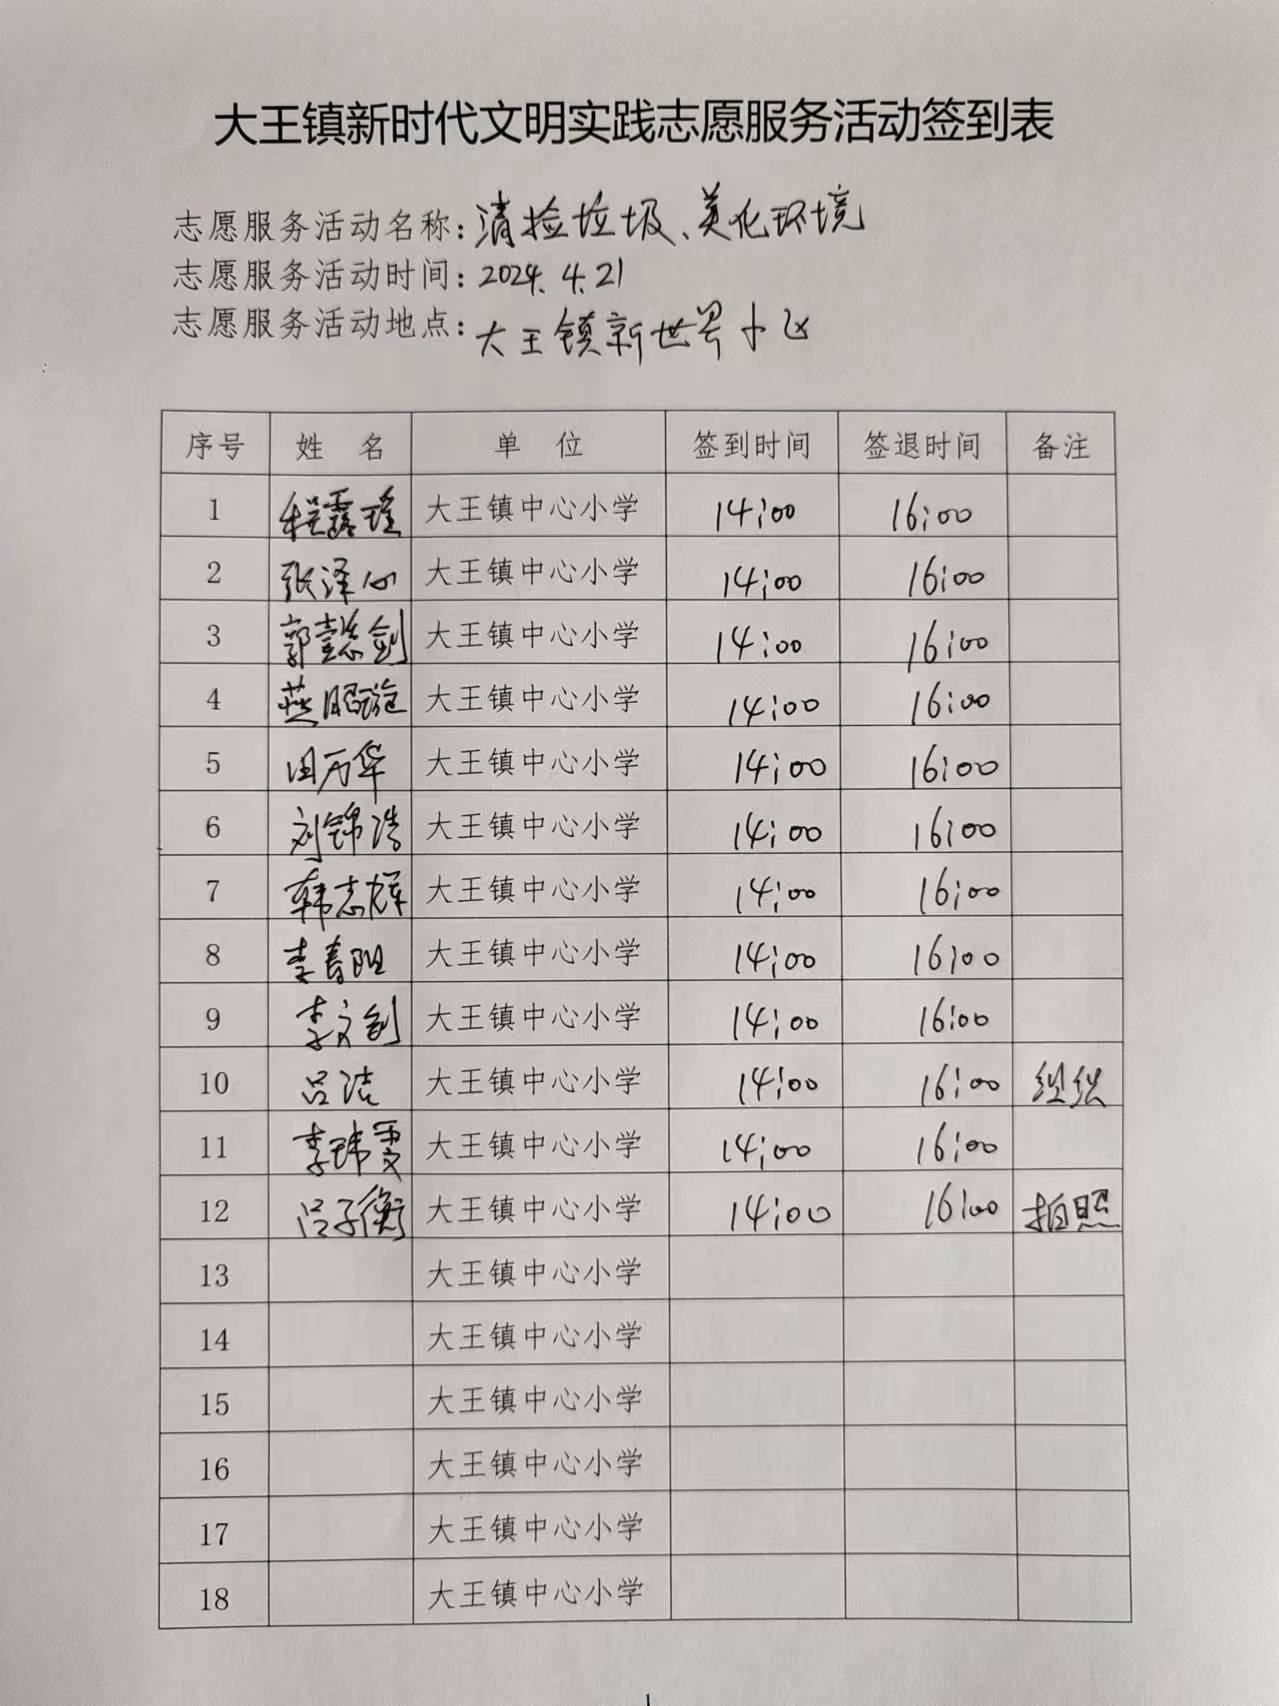 大王镇新时代文明实践志愿服务活动签到表
志愿服务活动名称：清捡垃圾、美化环境
志愿服务活动时间：2024.4.21
志愿服务活动地点：大王镇新世界小区
序号 姓 名 单 位 签到时间 签退时间 备注
1 程露瑶 大王镇中心小学 14:00 16:00
2 张泽 大王镇中心小学 14:00 16:00
3 郭懿剑 大王镇中心小学 14:00 16:00
4 燕昭璇 大王镇中心小学 14:00 16:00
5 田万华 大王镇中心小学 14:00 16:00
6 刘锦浩 大王镇中心小学 14:00 16:00
7 韩志辉 大王镇中心小学 14:00 16:00
8 李春阳 大王镇中心小学 14:00 16:00
9 李文剑 大王镇中心小学 14:00 16:00
10 吕洁 大王镇中心小学 14:00 16:00 组织
11 李玮雯 大王镇中心小学 14:00 16:00
12 吕子衡 大王镇中心小学 14:00 16:00 拍照
13 大王镇中心小学
14 大王镇中心小学
15 大王镇中心小学
16 大王镇中心小学
17 大王镇中心小学
18 大王镇中心小学
1